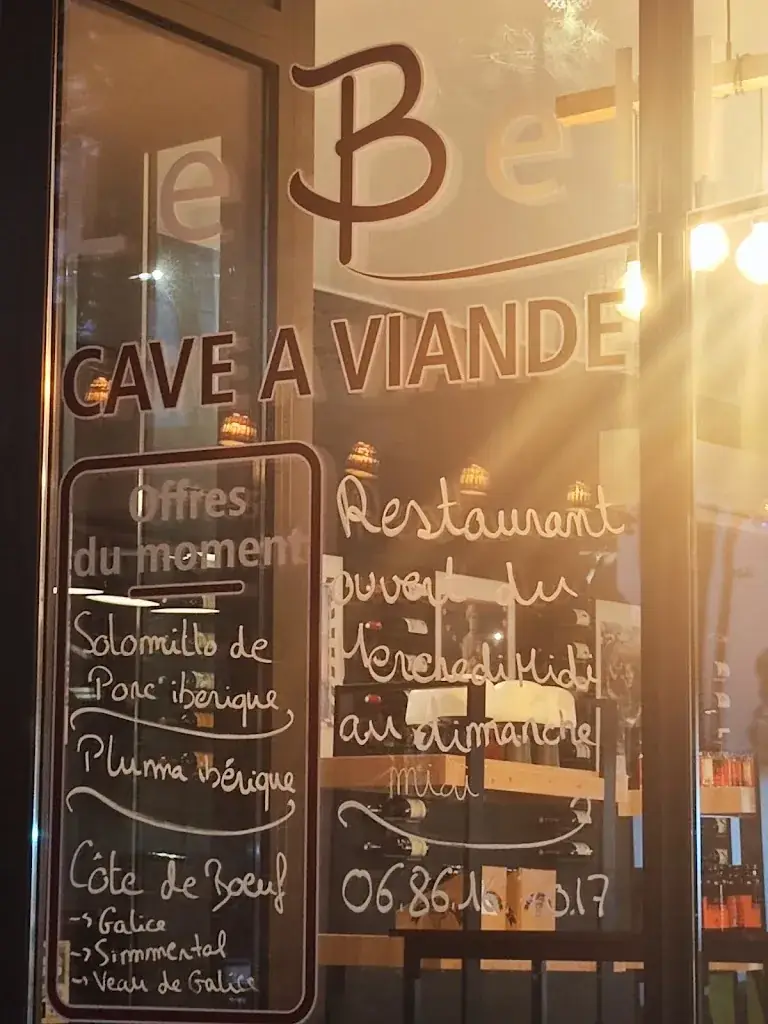 Le Bel
CAVE A VIANDE
Offres
du moment
Solomillo de
Porc ibérique
Pluma ibérique
Côte de Boeuf
-> Galice
-> Simmmental
-> Veau de Galice
Restaurant
ouvert du
Mercredi Midi
au dimanche
midi
06.86.16
3.17